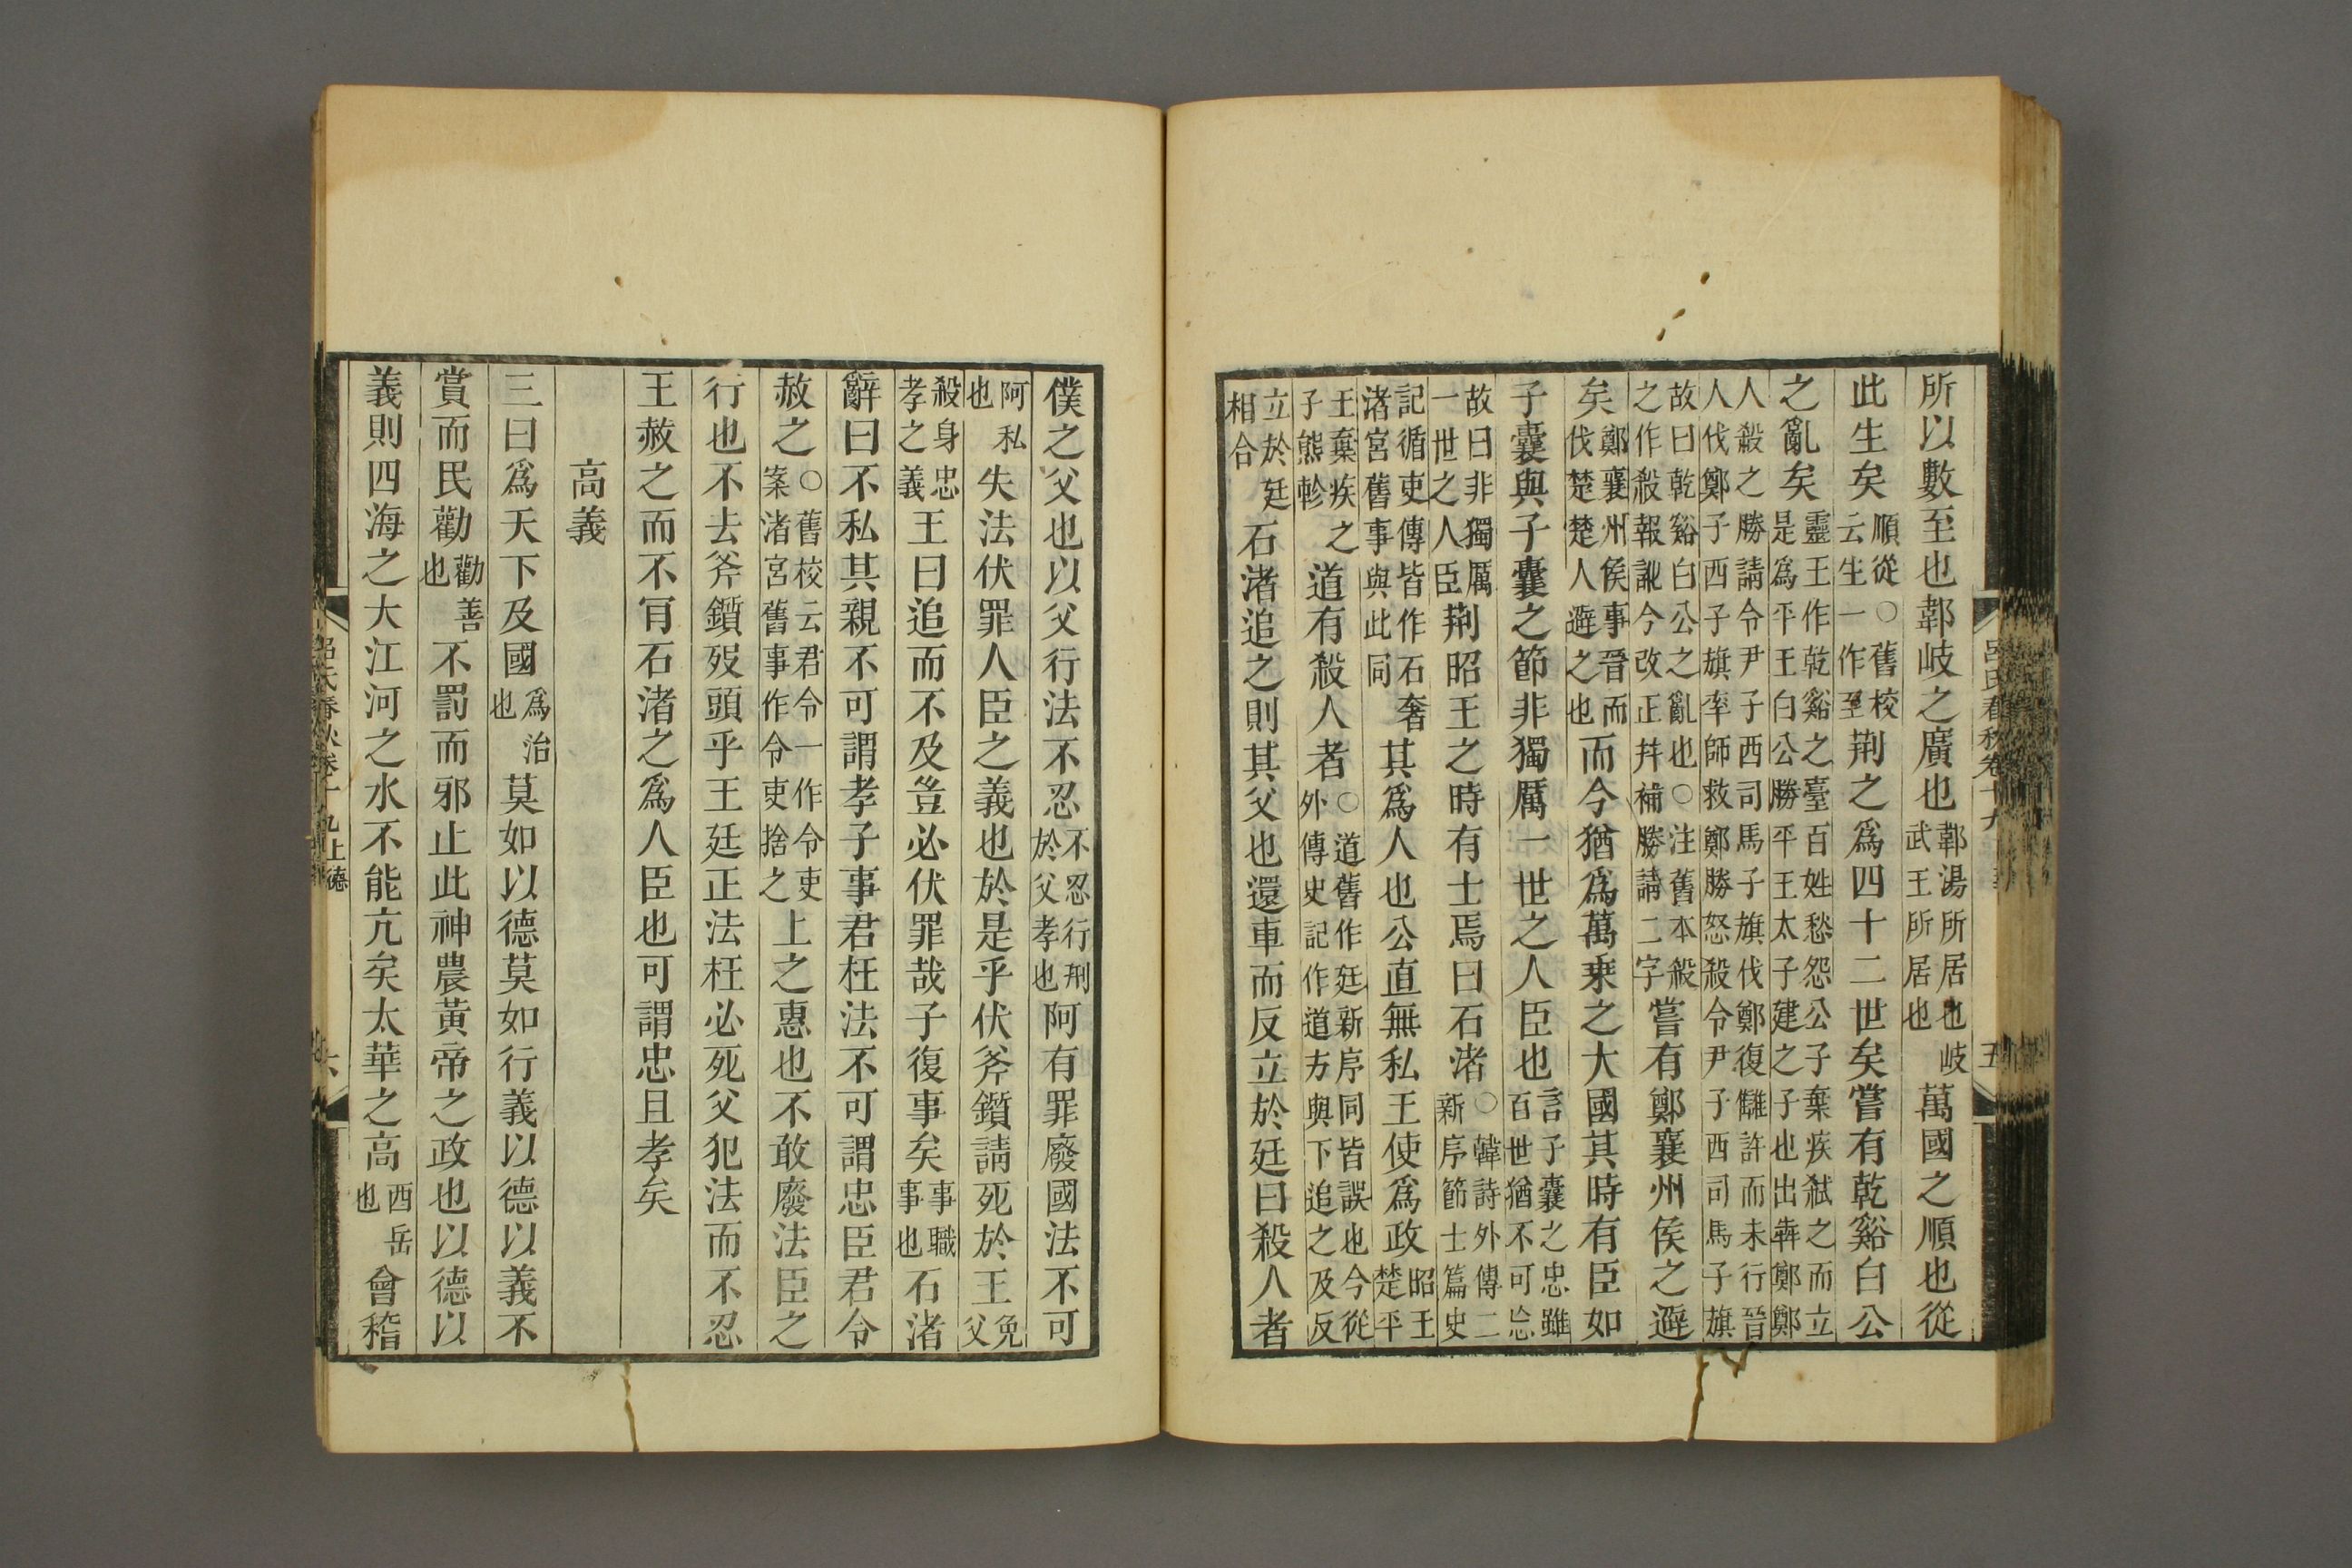 呂氏春秋卷十九
五
所以數至也郼岐之廣也郼湯所居也岐武王所居也萬國之順也從
此生矣順從○舊校云生一作至荆之爲四十二世矣嘗有乾谿白公
之亂矣靈王作乾谿之臺百姓愁怨公子棄疾弑之而立是爲平王白公勝平王太子建之子也出奔鄭鄭
人殺之勝請令尹子西司馬子旗伐鄭復讎許而未行晉人伐鄭子西子旗率師救鄭勝怒殺令尹子西司馬子旗
故曰乾谿白公之亂也○注舊本殺之作殺報訛今改正幷補勝請二字嘗有鄭襄州侯之避
矣鄭襄州侯事晉而伐楚楚人避之也而今猶爲萬乘之大國其時有臣如
子囊與子囊之節非獨厲一世之人臣也言子囊之忠雖百世猶不可忘
故曰非獨厲一世之人臣荆昭王之時有士焉曰石渚○韓詩外傳二新序節士篇史
記循吏傳皆作石奢渚宮舊事與此同其爲人也公直無私王使爲政昭王楚平
王棄疾之子熊軫道有殺人者○道舊作廷新序同皆誤也今從外傳史記作道方與下追之及反
立於廷相合石渚追之則其父也還車而反立於廷曰殺人者
僕之父也以父行法不忍不忍行刑於父孝也阿有罪廢國法不可
阿私也失法伏罪人臣之義也於是乎伏斧鑕請死於王免父
殺身忠孝之義王曰追而不及豈必伏罪哉子復事矣事職事也石渚
辭曰不私其親不可謂孝子事君枉法不可謂忠臣君令
赦之○舊校云君令一作令吏案渚宮舊事作令吏捨之上之惠也不敢廢法臣之
行也不去斧鑕歿頭乎王廷正法枉必死父犯法而不忍
王赦之而不肎石渚之爲人臣也可謂忠且孝矣
高義
三曰爲天下及國爲治也莫如以德莫如行義以德以義不
賞而民勸勸善也不罰而邪止此神農黃帝之政也以德以
義則四海之大江河之水不能亢矣太華之高西岳也會稽
呂氏春秋卷十九上德
六